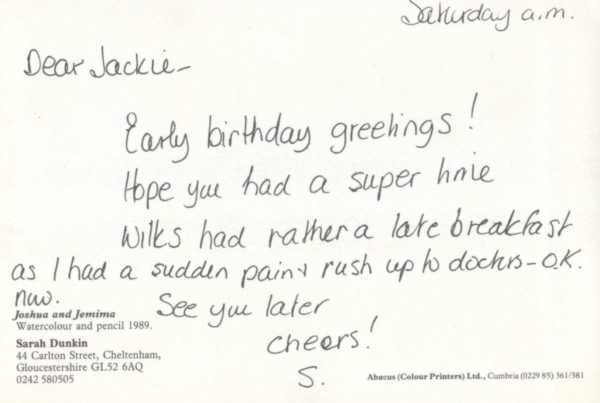 Saturday a.m.
Dear Jackie -
Early birthday greetings!
Hope you had a super time
Wilks had rather a late breakfast
as I had a sudden pain & rush up to doctors - O.K.
now.
See you later
Cheers!
S.
Joshua and Jemima
Watercolour and pencil 1989.
Sarah Dunkin
44 Carlton Street, Cheltenham,
Gloucestershire GL52 6AQ
0242 580505
Abacus (Colour Printers) Ltd., Cumbria (0229 85) 361/381